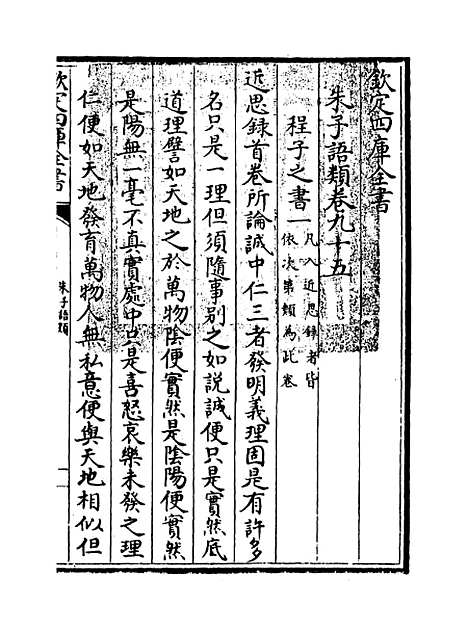 欽定四庫全書
朱子語類卷九十五
程子之書一
凡入近思錄者皆
依次第類為此卷
近思録首卷所論誠中仁三者發明義理固是有許多
名只是一理但須隨事别之如說誠便只是實然底
道理譬如天地之於萬物陰便實然是陰陽便實然
是陽無一毫不真實處中只是喜怒哀樂未發之理
仁便如天地發育萬物人無私意便與天地相似但
欽定四庫全書
朱子語類
一